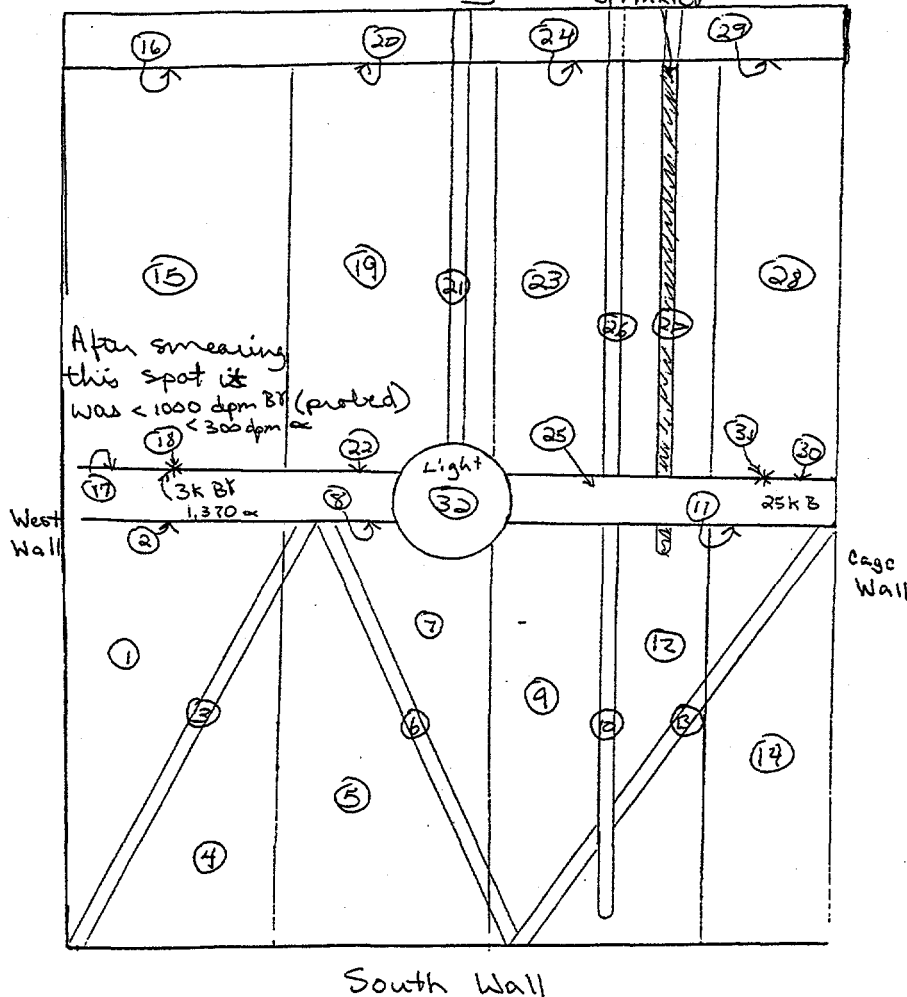 16
20
24
29
15
19
21
23
26
28
After smearing
this spot it
was < 1000 dpm Bγ (probed)
< 300 dpm α
18
22
25
31
30
17
3k Bγ
1,370 α
8
Light
32
11
25k B
West
Wall
2
Cage
Wall
1
7
12
3
6
9
10
13
14
5
4
South Wall